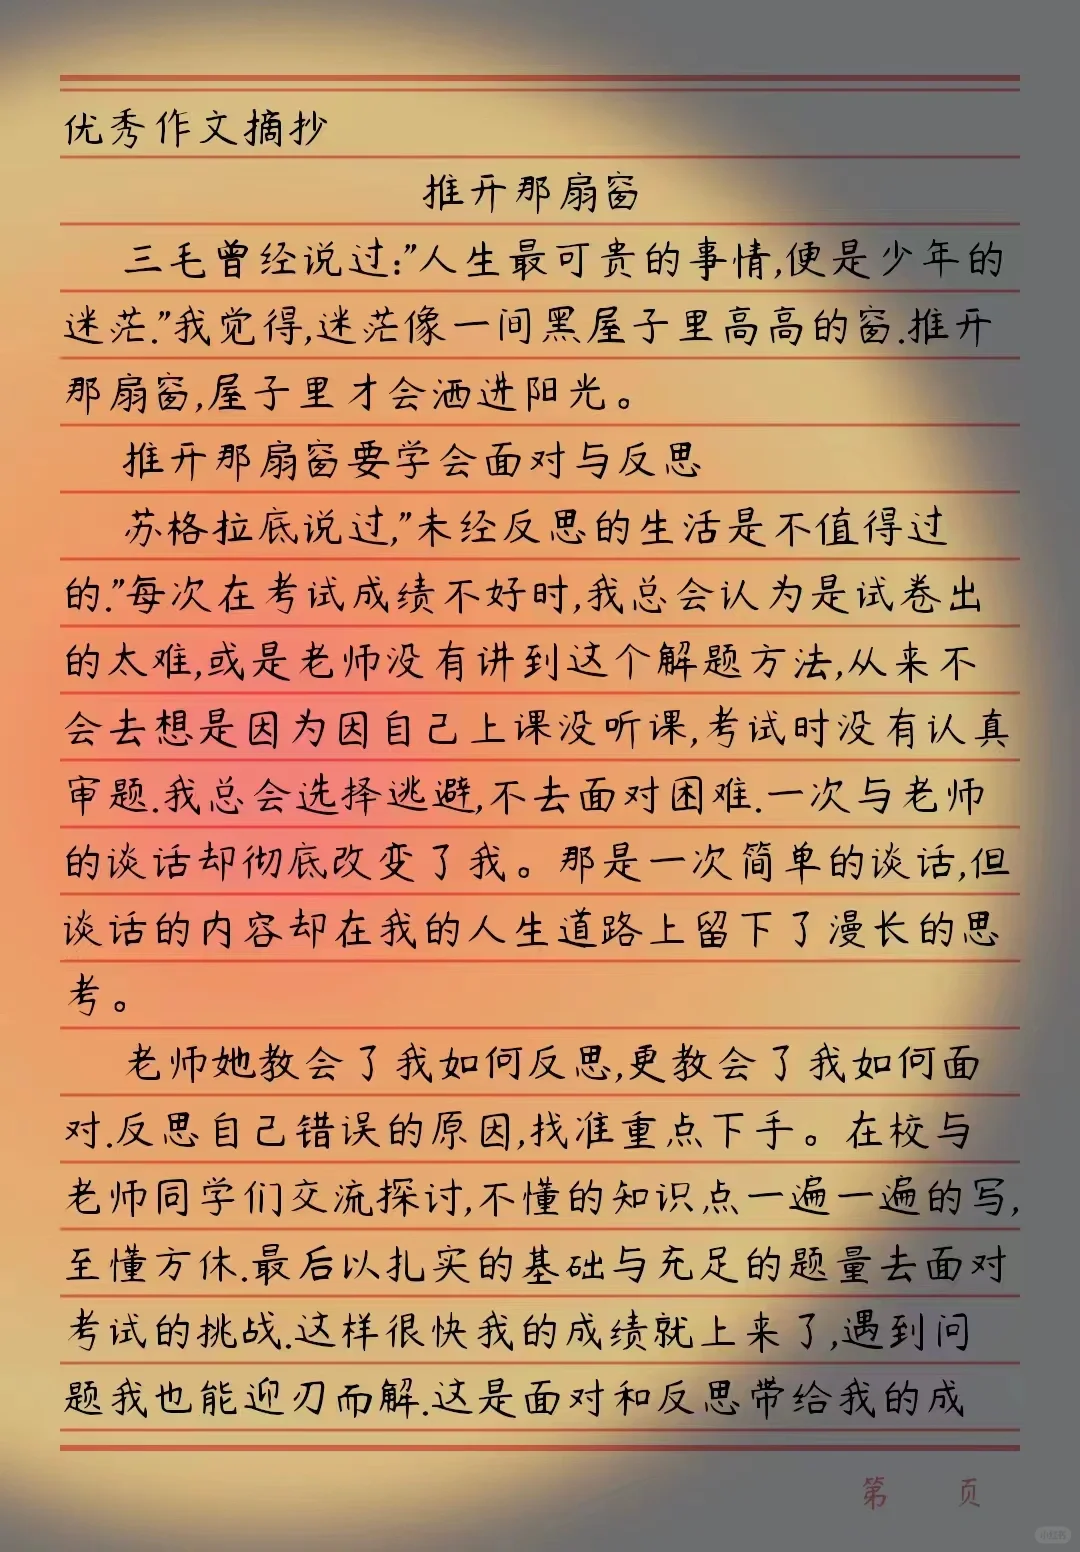 优秀作文摘抄
推开那扇窗
三毛曾经说过:"人生最可贵的事情,便是少年的
迷茫."我觉得,迷茫像一间黑屋子里高高的窗.推开
那扇窗,屋子里才会洒进阳光。
推开那扇窗要学会面对与反思
苏格拉底说过,"未经反思的生活是不值得过
的."每次在考试成绩不好时,我总会认为是试卷出
的太难,或是老师没有讲到这个解题方法,从来不
会去想是因为因自己上课没听课,考试时没有认真
审题.我总会选择逃避,不去面对困难.一次与老师
的谈话却彻底改变了我。那是一次简单的谈话,但
谈话的内容却在我的人生道路上留下了漫长的思
考。
老师她教会了我如何反思,更教会了我如何面
对.反思自己错误的原因,找准重点下手。在校与
老师同学们交流探讨,不懂的知识点一遍一遍的写,
至懂方休.最后以扎实的基础与充足的题量去面对
考试的挑战.这样很快我的成绩就上来了,遇到问
题我也能迎刃而解.这是面对和反思带给我的成
第 页
小红书